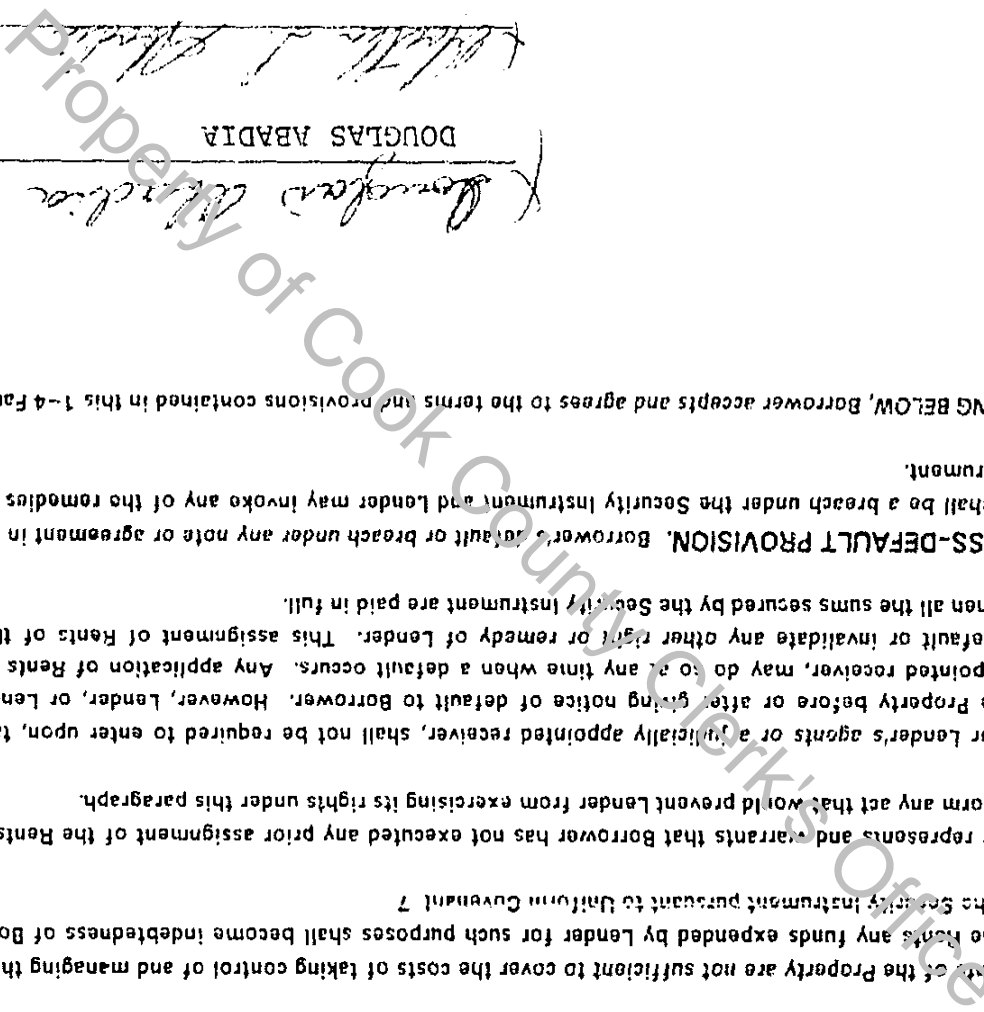 nts of the Property are not sufficient to cover the costs of taking control of and managing th
e Rents any funds expended by Lender for such purposes shall become indebtedness of Bo
he Security Instrument pursuant to Uniform Covenant 7
r represents and warrants that Borrower has not executed any prior assignment of the Rents
orm any act that would prevent Lender from exercising its rights under this paragraph.
or Lender's agents or a judicially appointed receiver, shall not be required to enter upon, ta
e Property before or after giving notice of default to Borrower. However, Lender, or Len
ppointed receiver, may do so at any time when a default occurs. Any application of Rents
efault or invalidate any other right or remedy of Lender. This assignment of Rents of th
hen all the sums secured by the Security Instrument are paid in full.
SS-DEFAULT PROVISION. Borrower's default or breach under any note or agreement in
hall be a breach under the Security Instrument and Lender may invoke any of the remedies
rument.
NG BELOW, Borrower accepts and agrees to the terms and provisions contained in this 1-4 Fa
X Douglas Abadia
DOUGLAS ABADIA
Property of Cook County Clerk's Office